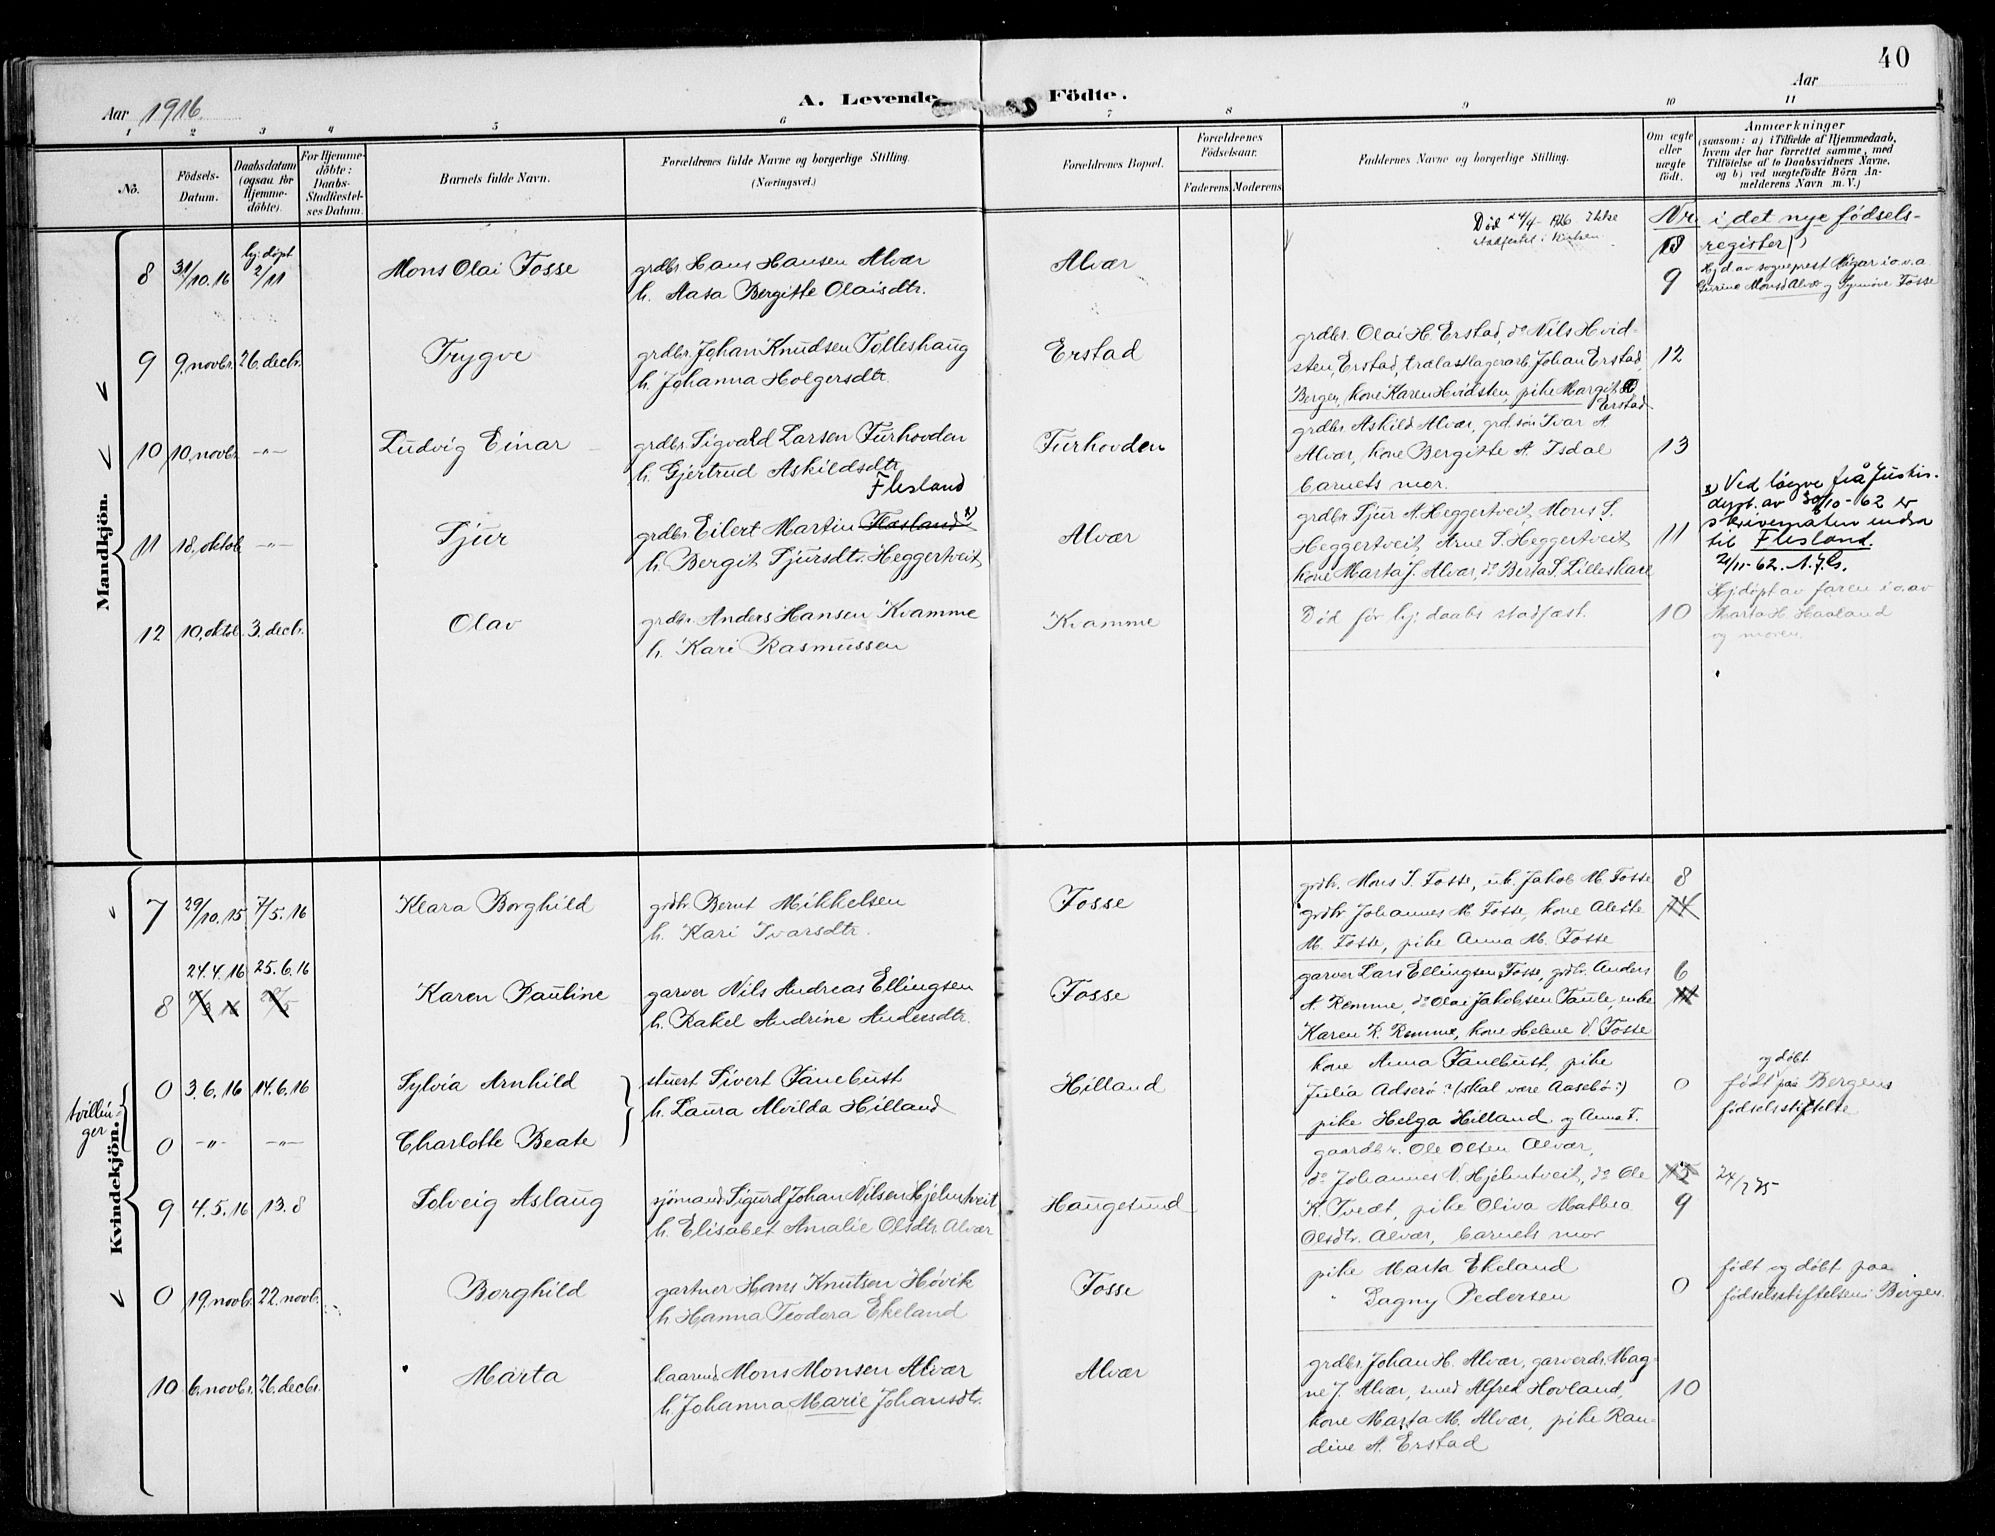 40
Aar 1916
A. Levende Födte.
Aar
1 2 3 4 5 6 7 8 9 10 11
No.
Födsels-Datum.
Daabsdatum (ogsaa for Hjemme-döbte).
For Hjemme-döbte: Daabs-Stadfæstel-ses Datum.
Barnets fulde Navn.
Forældrenes fulde Navne og borgerlige Stilling. (Næringsvei.)
Forældrenes Bopæl.
Forældrenes Födselsaar.
Faderens. Moderens.
Faddernes Navne og borgerlige Stilling.
Om ægte eller uægte födt.
Anmærkninger
(saasom: a) i Tilfælde af Hjemmedaab, hvem der har forrettet samme, med Tilföielse af to Daabsvidners Navne, og b) ved uægtefödte Börn An-melderens Navn m. V.)
Nr i det nye fødsels-
register
Mandkjön.
8 31/10.16 hj. døpt 2/11 Mons Olai Fosse
grdbr Hans Hansen Alvær
h. Aasa Bergitte Olaisdtr.
Alvær
9
9 9. novbr. 26. decbr. Trygve
grdbr. Johan Knudsen Tolleshaug
h. Johanna Holgersdtr.
Erstad
grdbr. Olai H. Erstad, do Nils Hvid-
sten, Erstad, trælastlagerarb. Johan Erstad,
Bergen, kone Karen Hvidsten, pike Margit
Erstad
12
10 10. novbr. -"- Ludvig Einar
grdbr. Sigvald Larsen Furhovden
h. Gjertrud Askildsdtr.
Furhovden
grdbr. Askild Alvær, grd.søn Ivar A.
Alvær, kone Bergitte A. Isdal
barnets mor.
13
11 18. oktob. -"- Tjur
Flesland
grdbr. Eilert Martin Flæsland x)
h. Bergit Tjursdtr. Heggertveit
Alvær
grdbr. Tjur A. Heggertveit, Mons T.
Heggertveit, Arne T. Heggertveit
kone Marta J. Alvær, do Berta T. Lilleskare
11
x) Ved løyve frå Justis-
dept. av 30/10-62 er
skrivemåten endra
til Flesland.
12 10. oktob. 3. decbr. Olav
grdbr. Anders Hansen Kvamme
h. Kari Rasmussen
Kvamme
Død før hj. daabs stadfæst.
10
Hjdøpt av faren i o.av
Marta H. Haaland
og moren.
Kvindekjön.
7 29/10.15 7/5.16 Klara Borghild
grdbr Bernt Mikkelsen
h. Kari Ivarsdtr.
Fosse
grdbr. Mons I. Fosse, uk. Jakob M. Fosse
grdbr Johannes M. Fosse, kone Alette
M. Fosse, pike Anna M. Fosse
8
24.4.16 25.6.16
8 Karen Pauline
garver Nils Andreas Ellingsen
h. Rakel Andrine Andersdtr.
Fosse
garver Lars Ellingsen Fosse, grdbr. Anders
A. Romme, do Olai Jakobsen Taule, enke
Karen R. Romme, kone Helene V. Fosse
6
tvillin-
ger
0 3.6.16 14.6.16 Sylvia Arnhild
0 -"- -"- Charlotte Beate
stuert Sivert Fanebust
h. Laura Alvilda Hilland
Hilland
kone Anna Fanebust, pike
Julia Adserø ?(skal være Aasebø:)
pike Helga Hilland og Anna F.
0
og døbt
født paa Bergens
fødselsstiftelse
9 4.5.16 13.8 Solveig Aslaug
sjömand Sigurd Johan Nilsen Hjelmtveit
h. Elisabet Amalie Olsdtr. Alvær
Haugesund
gaardbr. Ole Olsen Alvær,
do Johannes N. Hjelmtveit, do Ole
K. Tvedt, pike Oliva Mathea
Olsdtr. Alvær, barnets mor
9
0 19. novbr. 22. novb. Borghild
gartner Hans Knutsen Høvik
h. Hanna Teodora Ekeland
Fosse
pike Marta Ekeland
" Dagny Pedersen
0
født og døbt paa
fødselsstiftelsen i Bergen.
10 6. novbr. 26. decbr. Marta
Mons Monsen Alvær
h. Johanna Marie Johansdtr.
Alvær
grdbr. Johan H. Alvær, garverdr. Mag-
ne J. Alvær, smed Alfred Hovland,
kone Marta M. Alvær, pike Ran-
dine A. Erstad
10